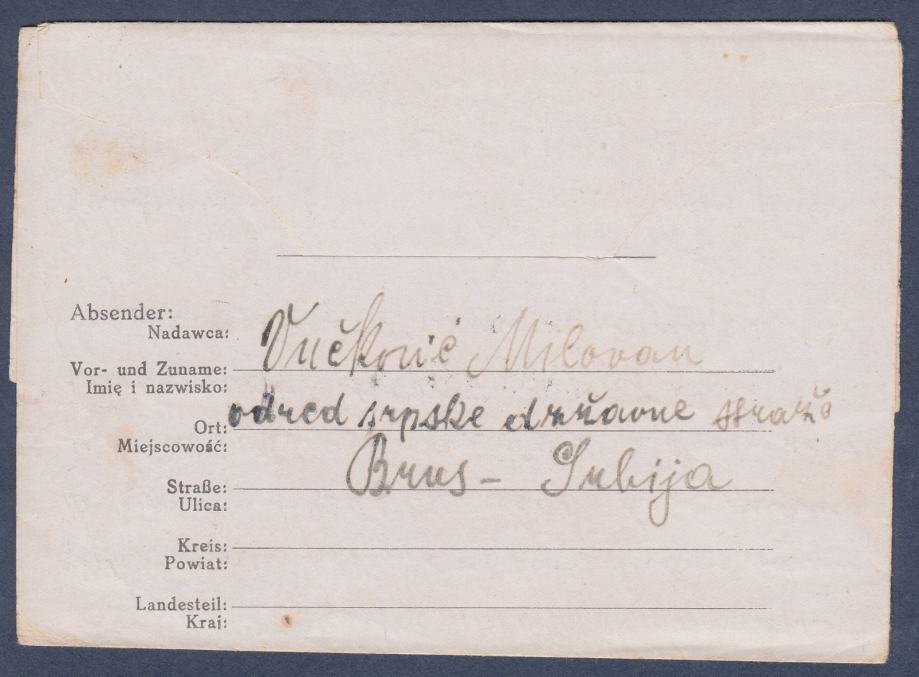 Absender:
Nadawca:
Vučković Milovan
Vor- und Zuname:
Imię i nazwisko:
odred srpske državne straže
Ort:
Miejscowość:
Brus - Srbija
Straße:
Ulica:
Kreis:
Powiat:
Landesteil:
Kraj: